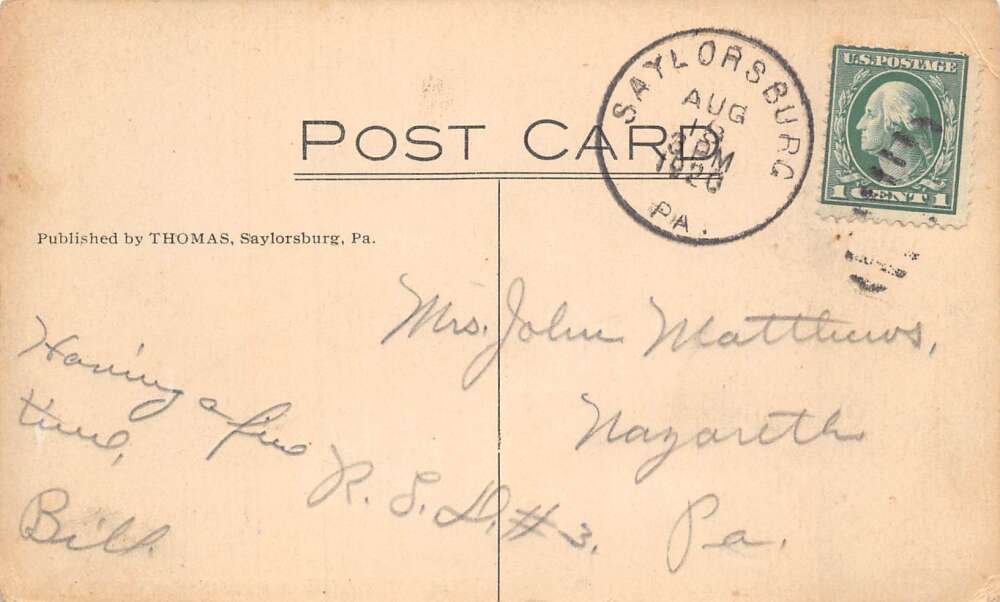 SAYLORSBURG
AUG
18
3 PM
1920
PA.
U.S. POSTAGE
1 CENT 1
POST CARD
Published by THOMAS, Saylorsburg, Pa.
Having a fine
time,
Bill.
Mrs. John Matthews,
Nazareth
R. F. D. #3. Pa.